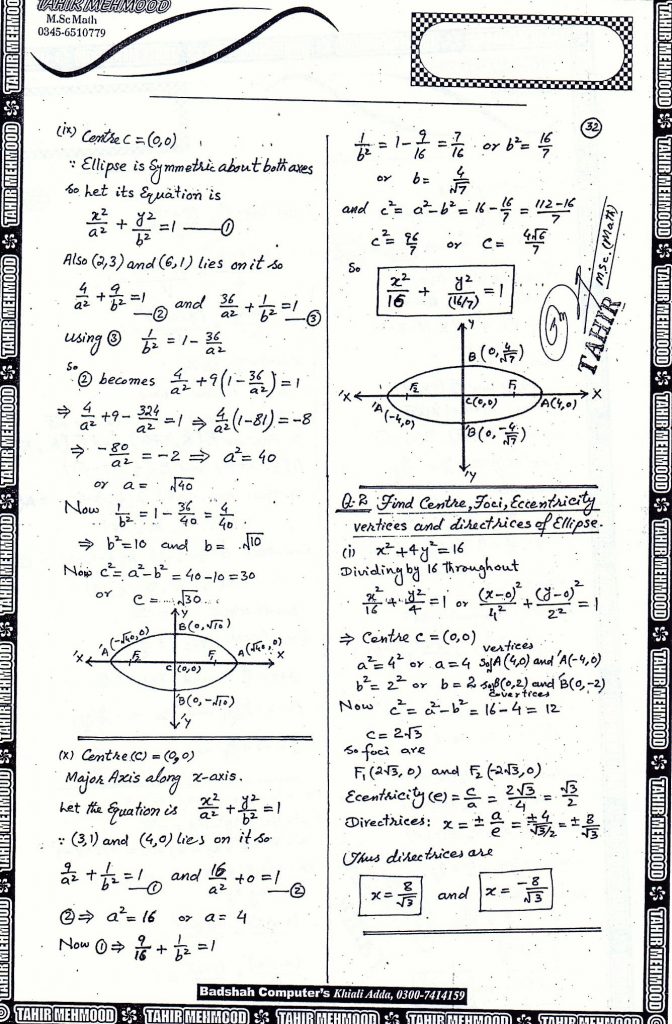 TAHIR MEHMOOD
M.Sc Math
0345-6510779
32
(ix) Centre C = (0,0)
∵ Ellipse is Symmetric about both axes
so Let its Equation is
x²/a² + y²/b² = 1 —①
Also (2,3) and (6,1) lies on it so
4/a² + 9/b² = 1 —② and 36/a² + 1/b² = 1 —③
using ③ 1/b² = 1 - 36/a²
So
② becomes 4/a² + 9(1 - 36/a²) = 1
⇒ 4/a² + 9 - 324/a² = 1 ⇒ 4/a²(1-81) = -8
⇒ -80/a² = -2 ⇒ a² = 40
or a = √40
Now 1/b² = 1 - 36/40 = 4/40
⇒ b² = 10 and b = √10
Now c² = a² - b² = 40 - 10 = 30
or c = √30
Y
B(0,√10)
'A(-√40,0)
A(√40,0)
'X
F₂
C(0,0)
F₁
X
'B(0,-√10)
'Y
(x) Centre (C) = (0,0)
Major Axis along x-axis.
Let the Equation is x²/a² + y²/b² = 1
∵ (3,1) and (4,0) lies on it so
9/a² + 1/b² = 1 —① and 16/a² + 0 = 1 —②
② ⇒ a² = 16 or a = 4
Now ① ⇒ 9/16 + 1/b² = 1
1/b² = 1 - 9/16 = 7/16 or b² = 16/7
or b = 4/√7
and c² = a² - b² = 16 - 16/7 = (112-16)/7
c² = 96/7 or c = 4√6/7
So
x²/16 + y²/(16/7) = 1
TAHIR
M.Sc. (Math)
Y
B(0, 4/√7)
'X
F₂
F₁
X
'A(-4,0)
C(0,0)
A(4,0)
'B(0, -4/√7)
'Y
Q.2 Find Centre, Foci, Eccentricity
vertices and directrices of Ellipse.
(i) x² + 4y² = 16
Dividing by 16 throughout
x²/16 + y²/4 = 1 or (x-0)²/4² + (y-0)²/2² = 1
⇒ Centre C = (0,0)
vertices
a² = 4² or a = 4 so A(4,0) and 'A(-4,0)
b² = 2² or b = 2 so B(0,2) and 'B(0,-2)
covertices
Now c² = a² - b² = 16 - 4 = 12
c = 2√3
So foci are
F₁(2√3, 0) and F₂(-2√3, 0)
Ecentricity (e) = c/a = 2√3/4 = √3/2
Directrices: x = ± a/e = ±4/(√3/2) = ± 8/√3
Thus directrices are
x = 8/√3 and x = -8/√3
Badshah Computer's Khiali Adda, 0300-7414159
TAHIR MEHMOOD TAHIR MEHMOOD TAHIR MEHMOOD TAHIR MEHMOOD TAHIR MEHMOOD